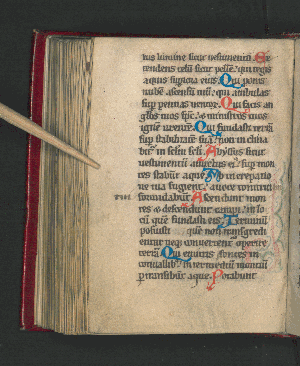 tus lumine sicut vestimento. Ex
tendens celū sicut pellē: qui tegis
aquis supiora eius. Qui ponis
nubē ascensū tuū: qui ambulas
sup pennas ventoꝝ. Qui facis an
głos tuos sp̄c: & ministros tuos
ignē urentē. Qui fundasti terrā
sup stabilitatē suā: non in clina
bit̄ in sclm scli. Abissus sicut
vestimentū amictus ei: sup mon
tes stabūt aque. Ab increpatio
ne tua fugient: a voce tonitrui
tui formidabūt. Ascendunt mon
tes & descendunt campi: in lo
cū quē fundasti eis. Terminū
posuisti quē non transgredi
entur: neqꝫ convertent̄ operire
terrā. Qui emittis fontes in
convallibꝫ: int̄ mediū montiū
ptransibūt aque. Potabunt